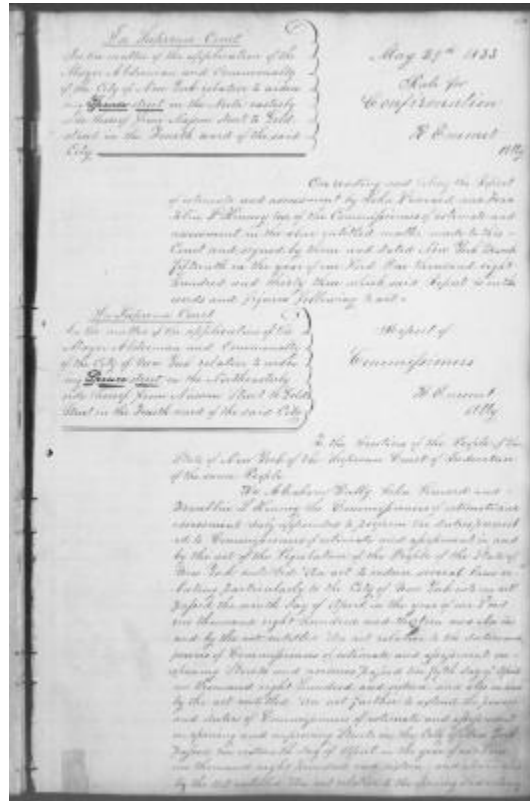 In Supreme Court
In the matter of the application of the
Mayor Aldermen and Commonalty
of the City of New York relative to widen
ing Spruce street on the North easterly
side thereof from Nassau Street to Gold
street in the Fourth ward of the said
City
May 29th 1833
Rule for
Confirmation
R Emmet
Atty
On reading and filing the Report
of estimate and assessment by John
two of the Commissioners of estimate and
assessment in the above entitled matter made to this
Court and signed by them and dated New York
fifteenth in the year of our Lord One thousand eight
hundred and thirty three which said Report is in the
words and figures following to wit
In Supreme Court
In the matter of the application of the
Mayor Aldermen and Commonalty
of the City of New York relative to widen
ing Spruce street on the Northeasterly
side thereof from Nassau Street to Gold
Street in the Fourth ward of the said City
Report of
Commissioners
R Emmet
Atty
To the Justices of the People of the
State of New York of the Supreme Court of Judicature
of the same People
We Abraham John and
the Commissioners of estimate and
assessment duly appointed to perform the duties
ed to Commissioners of estimate and assessment in and
by the act of the Legislature of the People of the State of
New York entitled An act to reduce several laws re
lating particularly to the City of New York into one act
passed the ninth day of April in the year of our Lord
one thousand eight hundred and thirteen and also in
and by the act entitled An act relative to the duties and
powers of Commissioners of estimate and assessment in
opening Streets and avenues passed the day of April
one thousand eight hundred and and also
by the act entitled An act further to extend the powers
and duties of Commissioners of estimate and assessment
in opening and improving Streets in the City of New York
passed the day of April in the year of our Lord
one thousand eight hundred and and also
by the act entitled An act relative to the opening